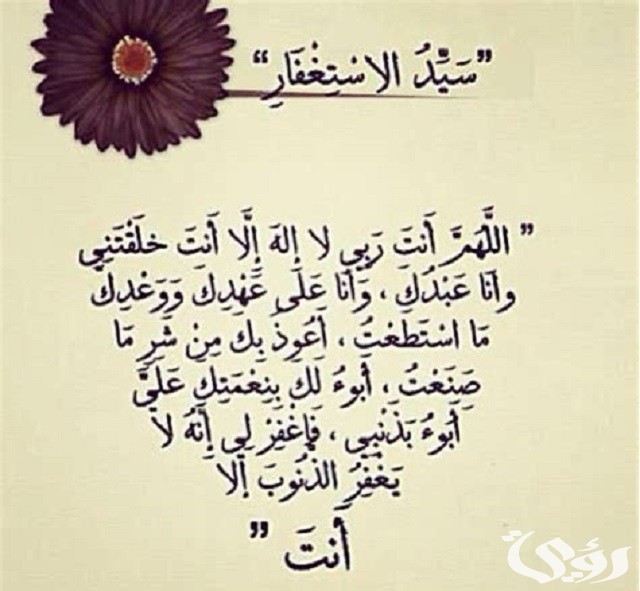 ”سَيِّدُ الاسْتِغْفَارِ“
” اللَّهُمَّ أَنتَ رَبِي لا إلهَ إلَّا أَنتَ خلَقْتَنِي
وأنَا عَبْدُكَ ، وَأنا عَلَى عَهْدِكَ وَوَعْدِكَ
مَا اسْتَطَعْتُ ، أعُوذُ بِكَ مِنْ شَرِ مَا
صَنَعْتُ ، أبوءُ لَكَ بِنِعْمَتِكَ عَلَيَّ
أَبوءُ بَذَنْبِي ، فَاِغْفِرْ لِي إنَّهُ لا
يَغْفِرُ الذنُوبَ إلا
أَنتَ ”
رؤية